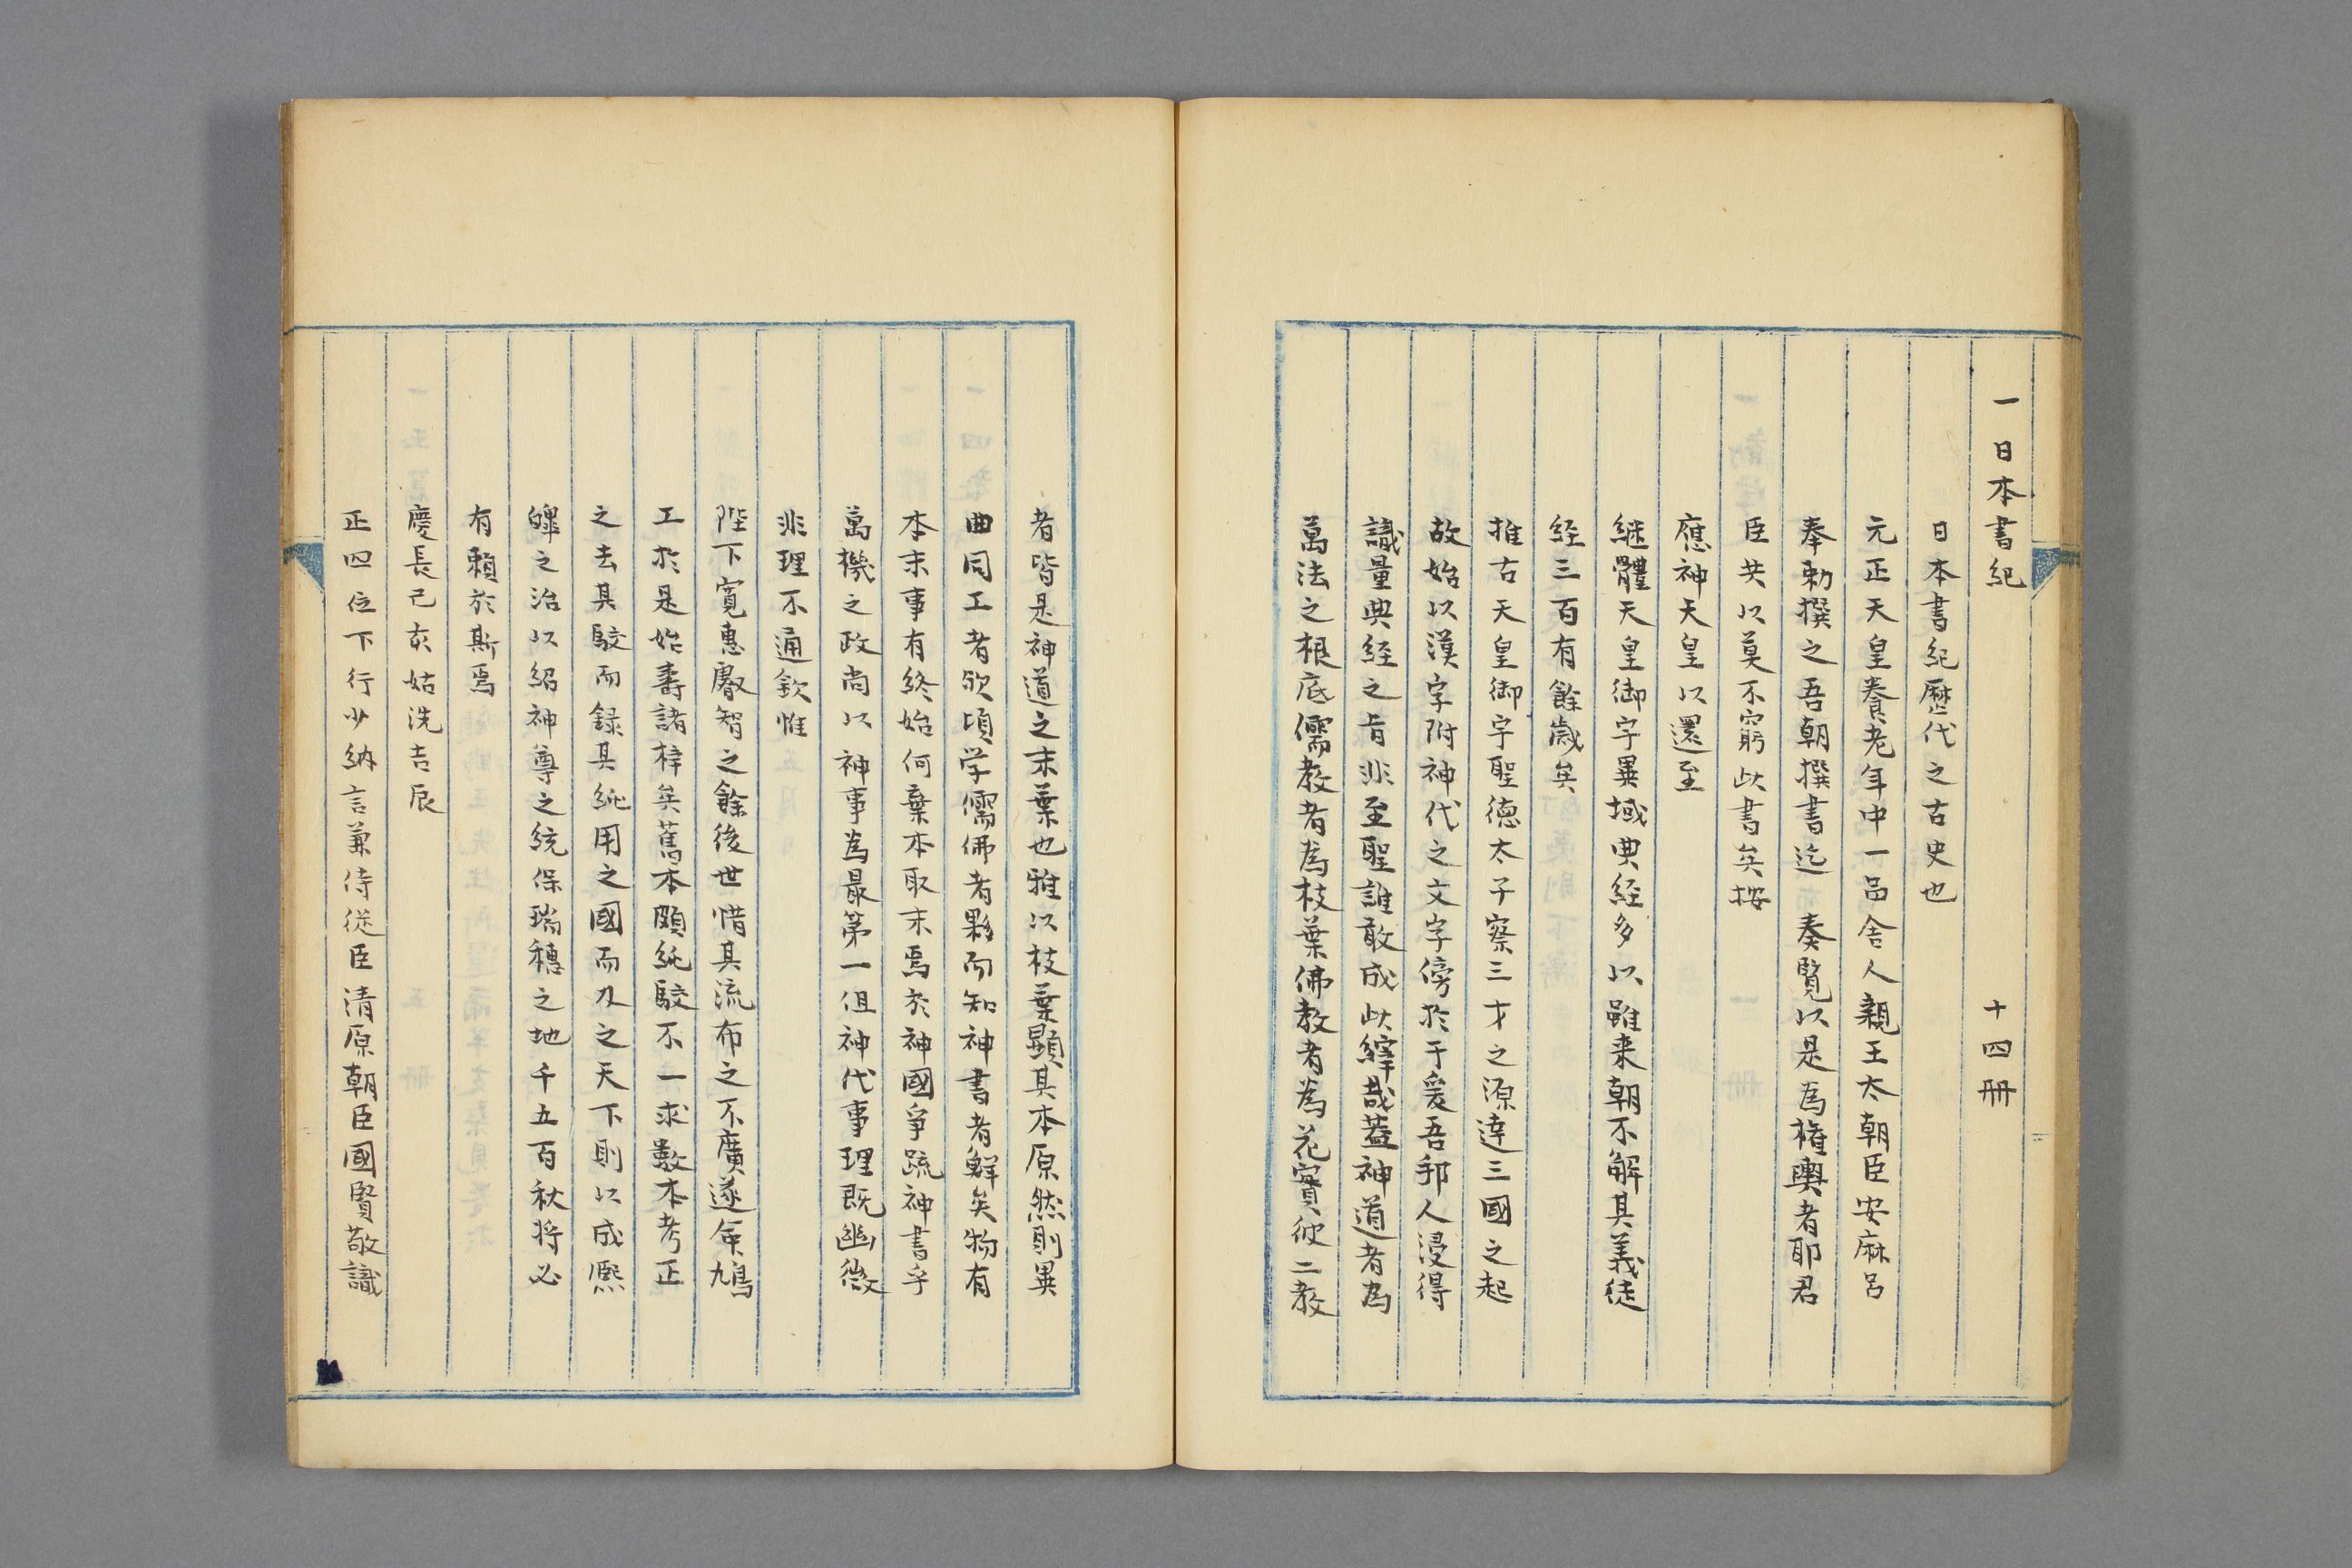 一日本書紀　十四冊
日本書紀歴代之古史也
元正天皇養老年中一品舎人親王太朝臣安麻呂
奉勅撰之吾朝撰書迄　奏覧以是為権輿者耶君
臣共以莫不窮此書矣按
應神天皇以還至
継體天皇御宇異域典経多以雖来朝不解其義徒
経三百有餘歳矣
推古天皇御宇聖徳太子察三才之源達三國之起
故始以漢字附神代之文字傍於于爰吾邦人浸得
識量典経之旨非至聖誰敢成此繹哉蓋神道者為
萬法之根底儒教者為枝葉佛教者為花實彼二教
者皆是神道之末葉也雅以枝葉顕其本原然則異
曲同工者欤頃学儒佛者夥而知神書者鮮矣物有
本末事有終始何棄本取末焉於神國争疏神書乎
萬機之政尚以神事為最第一但神代事理既幽微
非理不通欽惟
陛下寛惠叡智之餘後世惜其流布之不廣遂命鳩
工於是始壽諸梓矣舊本頗純駮不一求數本考正
之去其駮而録其純用之國而及之天下則以成熈
皥之治以紹神尊之統保瑞穗之地千五百秋将必
有頼於斯焉
慶長己亥姑洗吉辰
正四位下行少納言兼侍従臣清原朝臣國賢敬識